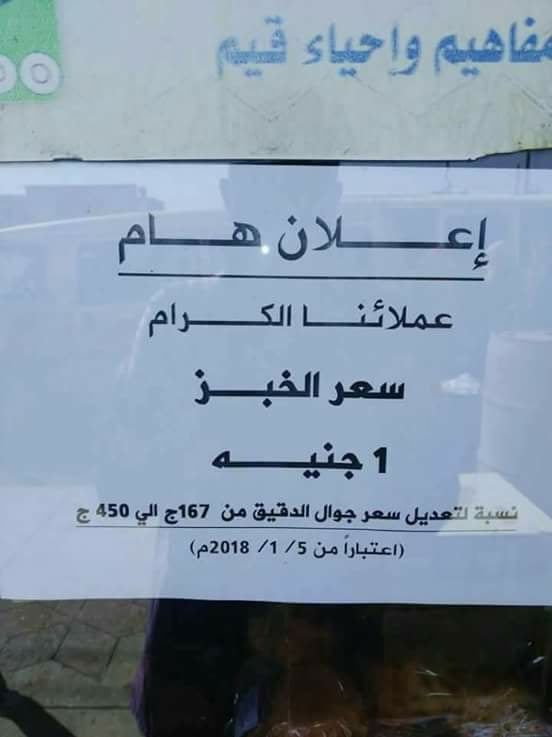 مفاهيم وإحياء قيم
إعلان هام
عملائنا الكرام
سعر الخبز
1 جنيه
نسبة لتعديل سعر جوال الدقيق من 167ج الي 450 ج
(اعتباراً من 5/ 1/ 2018م)